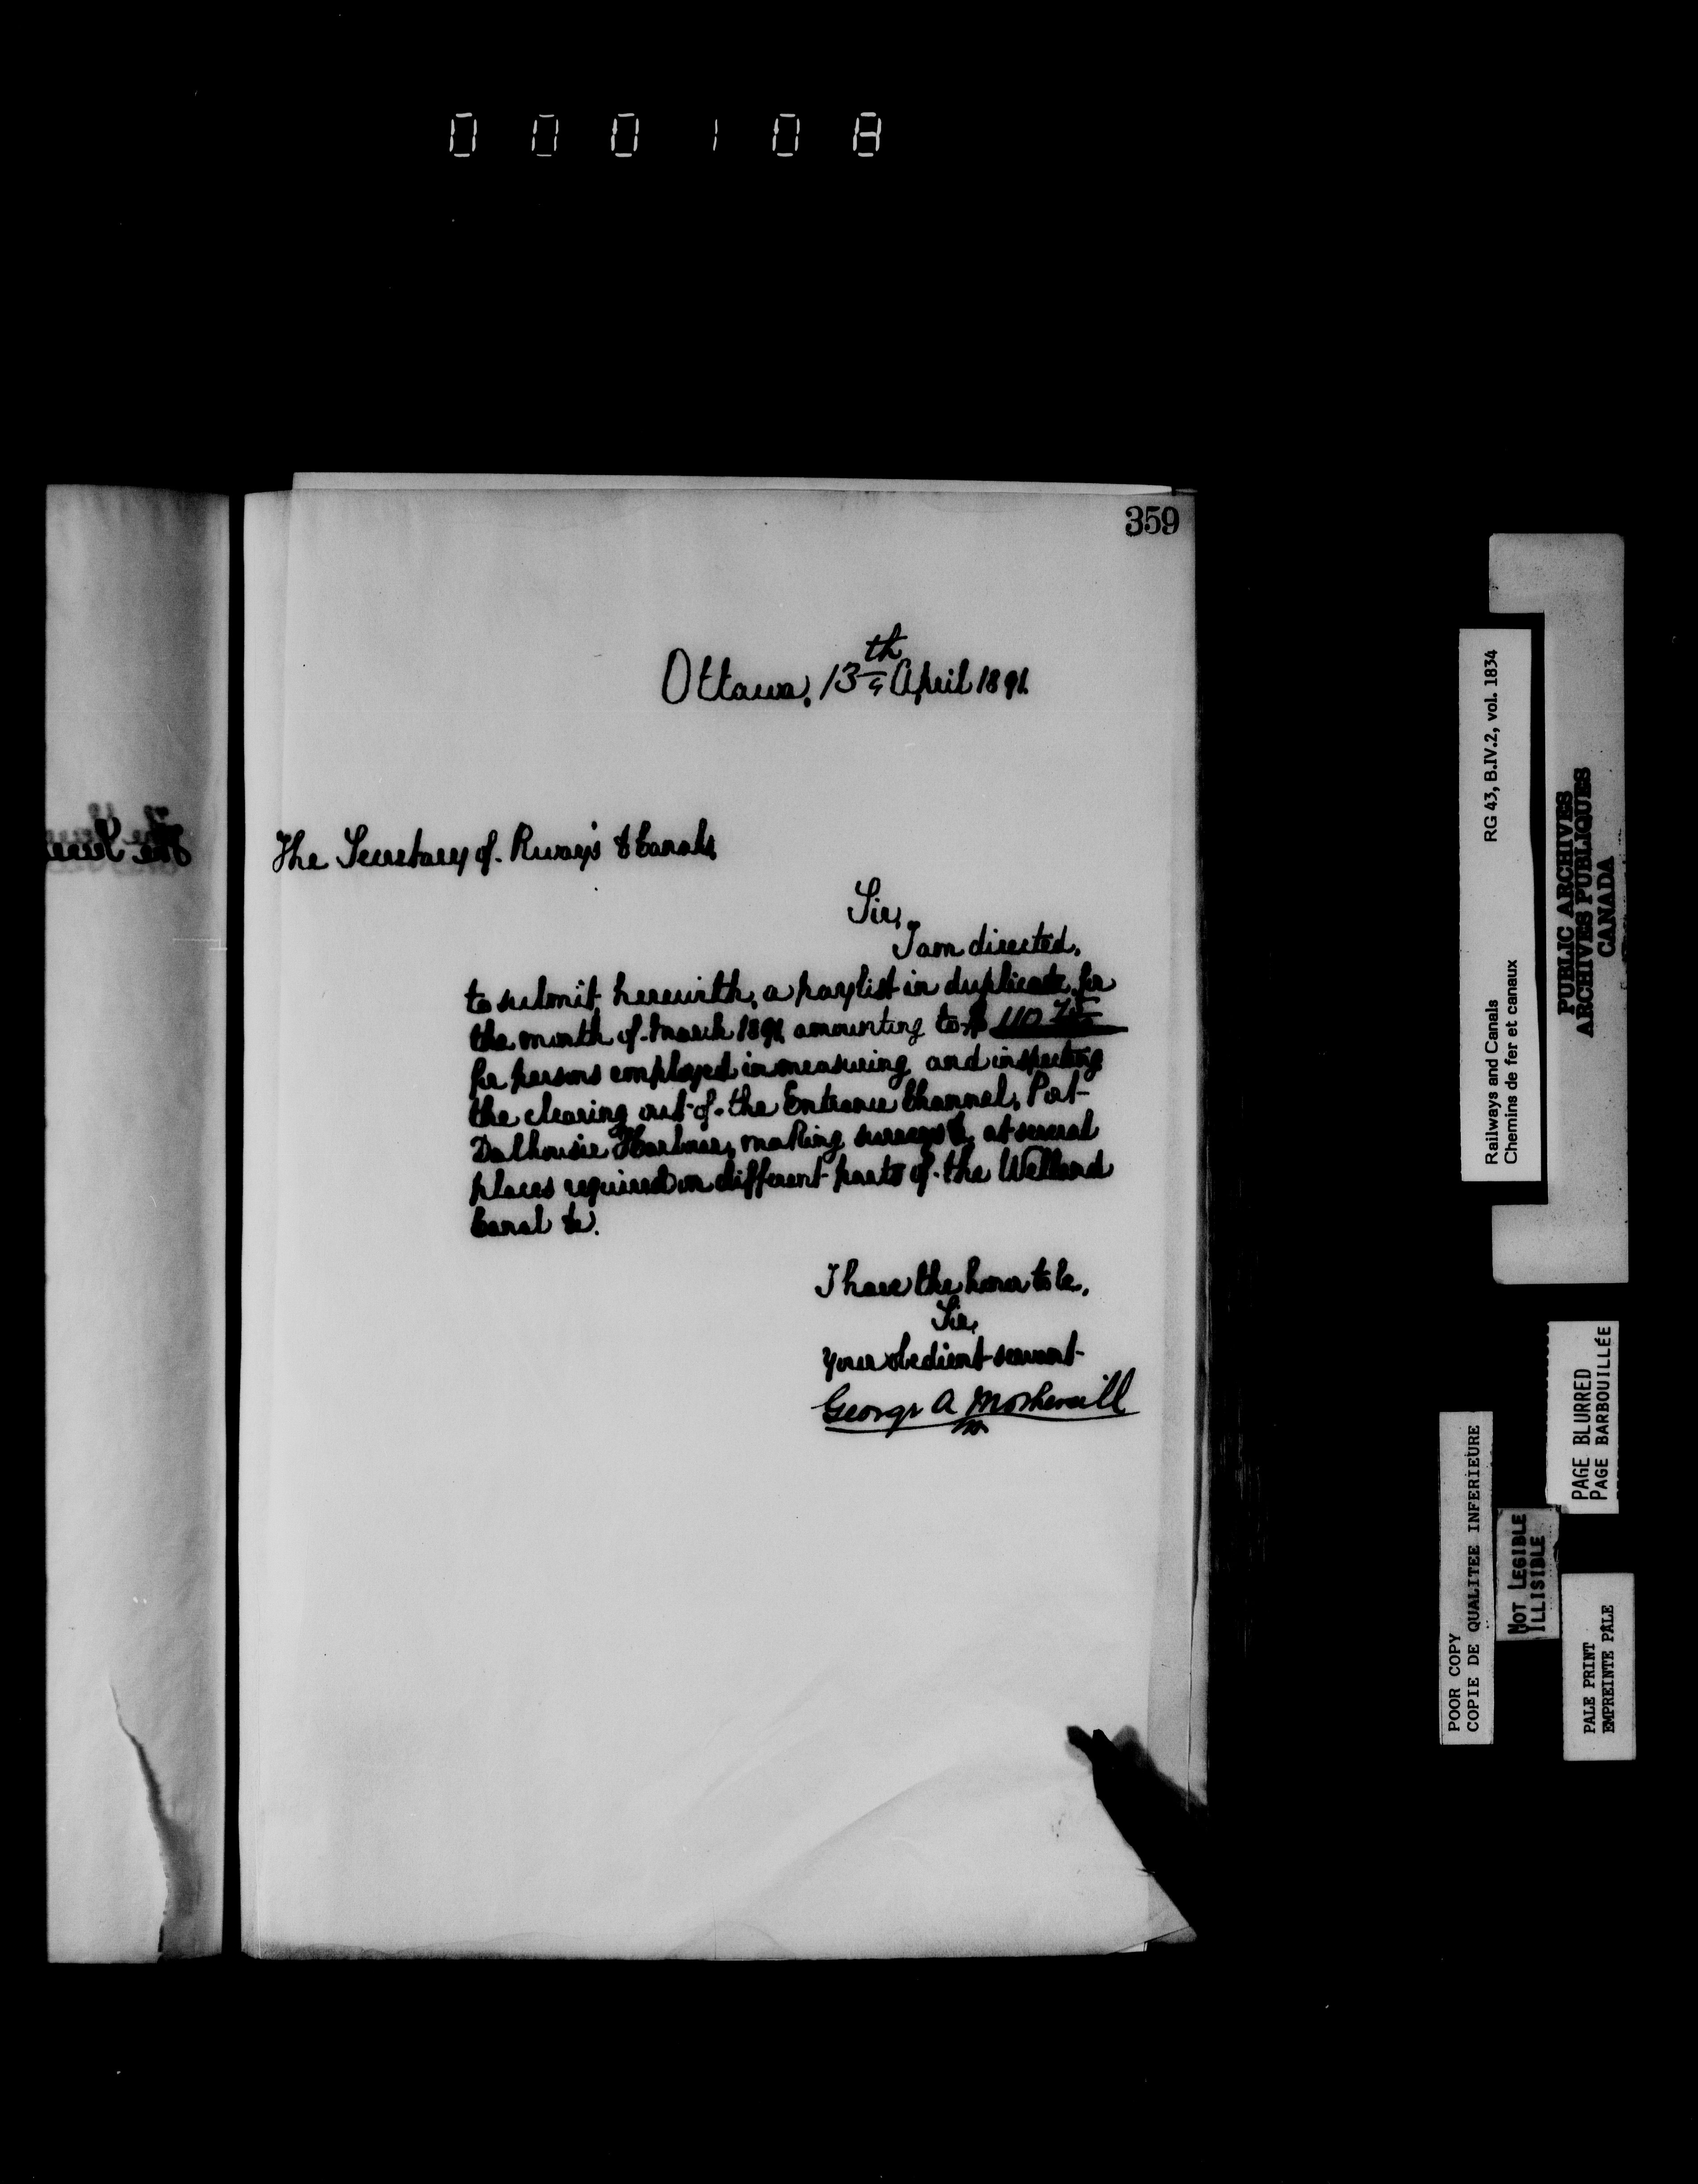 000108
359
Ottawa, 13th April 1891.
The Secretary of Rways & Canals
Sir,
I am directed,
to submit herewith, a paylist in duplicate, for
the month of March 1891, amounting to $ 110
for persons employed in measuring and inspecting
the clearing out of the Entrance Channel, Port
Dalhousie Harbour, making surveys &c, at several
places required on different parts of the Welland
Canal &c.
I have the honor to be,
Sir,
Your obedient servant
George A
Railways and Canals RG 43, B.IV.2, vol. 1834
Chemins de fer et canaux
PUBLIC ARCHIVES
ARCHIVES PUBLIQUES
CANADA
PAGE BLURRED
PAGE BARBOUILLÉE
POOR COPY
COPIE DE QUALITEE INFERIEURE
NOT LEGIBLE
ILLISIBLE
PALE PRINT
EMPREINTE PÂLE